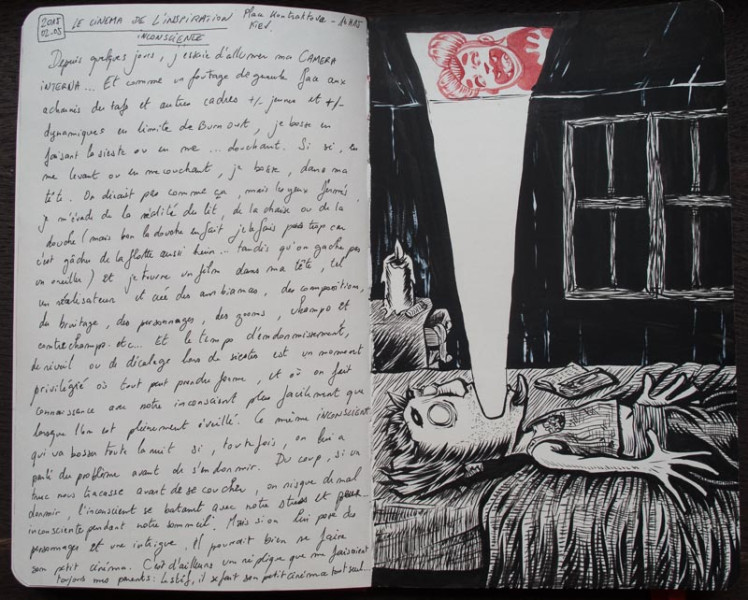 2018
02.05
LE CINEMA DE L'INSPIRATION
INCONSCIENTE
Place Kontraktova - 14H15
Kiev.
Depuis quelques jours, j'essaie d'allumer ma CAMERA
INTERNA... Et comme un foutage de gueule face aux
acharnés du taf et autres cadres +/- jeunes et +/-
dynamiques en limite de Burn out, je bosse en
faisant la sieste ou en me ... douchant. Si si, en
me levant ou en me couchant, je bosse, dans ma
tête. On dirait pas comme ça, mais les yeux fermés,
je m'évade de la réalité du lit, de la chaise ou de la
douche (mais bon la douche en fait je le fais pas trop car
c'est gâcher de la flotte aussi hein... tandis qu'on gache pas
un oreiller) et je tourne un film dans ma tête, tel
un réalisateur et crée des ambiances, des composition,
du bruitage, des personnages, des zooms, champs et
contre champs. etc... Et le temps d'endormissement,
de réveil ou de décalage lors de siestes est un moment
privilégié où tout peut prendre forme, et où on fait
connaissance avec notre inconscient plus facilement que
lorsque l'on est pleinement éveillé. Ce même INCONSCIENT
qui va bosser toute la nuit si, toutefois, on lui a
parlé du problème avant de s'endormir. Du coup, si un
truc nous tracasse avant de se coucher, on risque de mal
dormir, l'inconscient se battant avec notre stress et peur...
inconsciente pendant notre sommeil. Mais si on lui pose des
personnages et une intrigue, Il pourrait bien se faire
son petit cinéma. C'est d'ailleurs une réplique que me faisaient
toujours mes parents: Laisse, il se fait son petit cinéma tout seul...